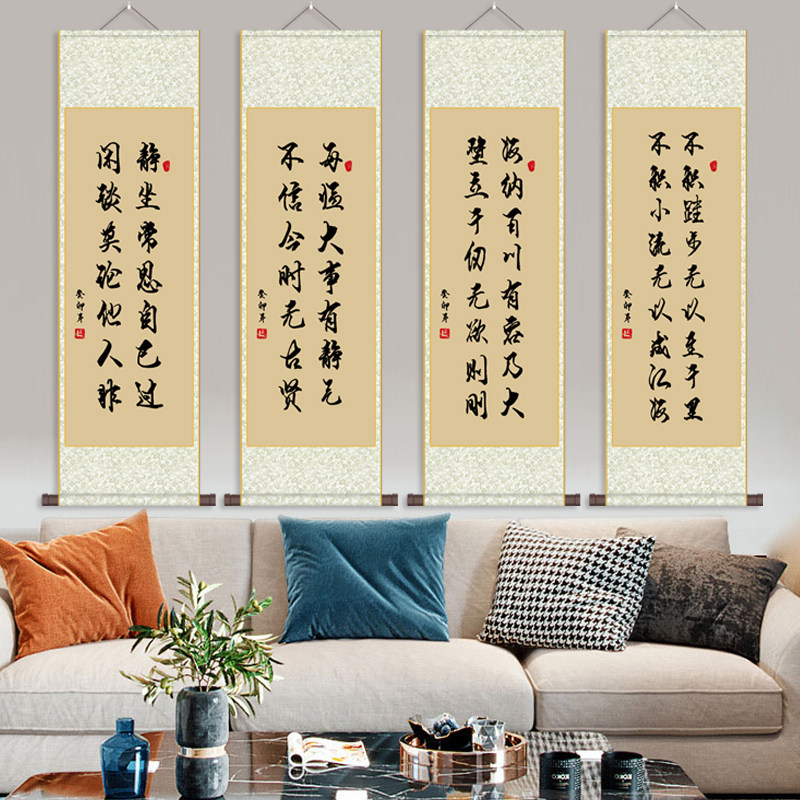 静坐常思自己过
闲谈莫论他人非
癸卯年
每临大事有静气
不信今时无古贤
癸卯年
海纳百川有容乃大
壁立千仞无欲则刚
癸卯年
不积跬步无以至千里
不积小流无以成江海
癸卯年